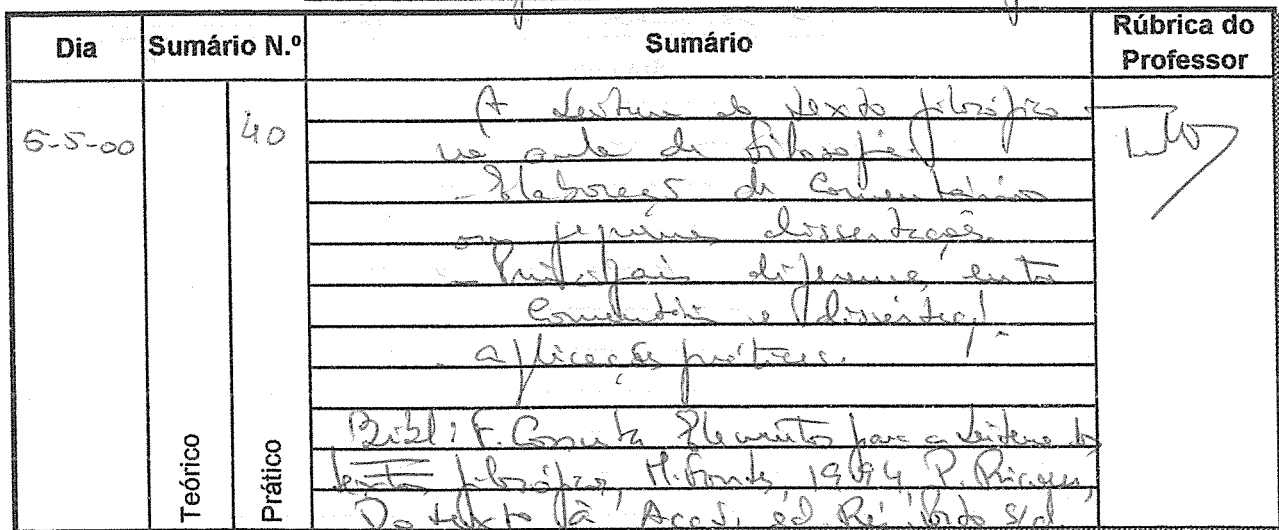 Dia Sumário N.º Sumário Rúbrica do Professor
5-5-00 40 A leitura do texto filosófico
na aula de filosofia.
- Elaboração de Comentários
ou pequenas dissertações.
- Principais diferenças entre
Comentário e dissertação
- aplicações práticas.
Bibl: F. Cossuta Elementos para a leitura do
textos filosóficos, M. Fontes, 1994, P. Ricoeur,
Do texto à Acção, ed Rés, Porto s/d
Teórico
Prático